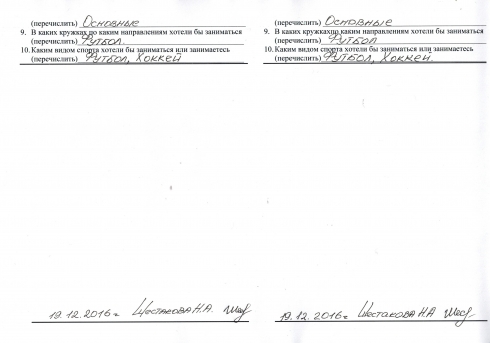 (перечислить) Основные
9. В каких кружках по каким направлениям хотели бы заниматься
(перечислить) Футбол.
10. Каким видом спорта хотели бы заниматься или занимаетесь
(перечислить) Футбол, Хоккей
19.12.2016г. Шестакова Н.А.
(перечислить) Основные
9. В каких кружках по каким направлениям хотели бы заниматься
(перечислить) Футбол
10. Каким видом спорта хотели бы заниматься или занимаетесь
(перечислить) Футбол, Хоккей.
19.12.2016г Шестакова Н.А